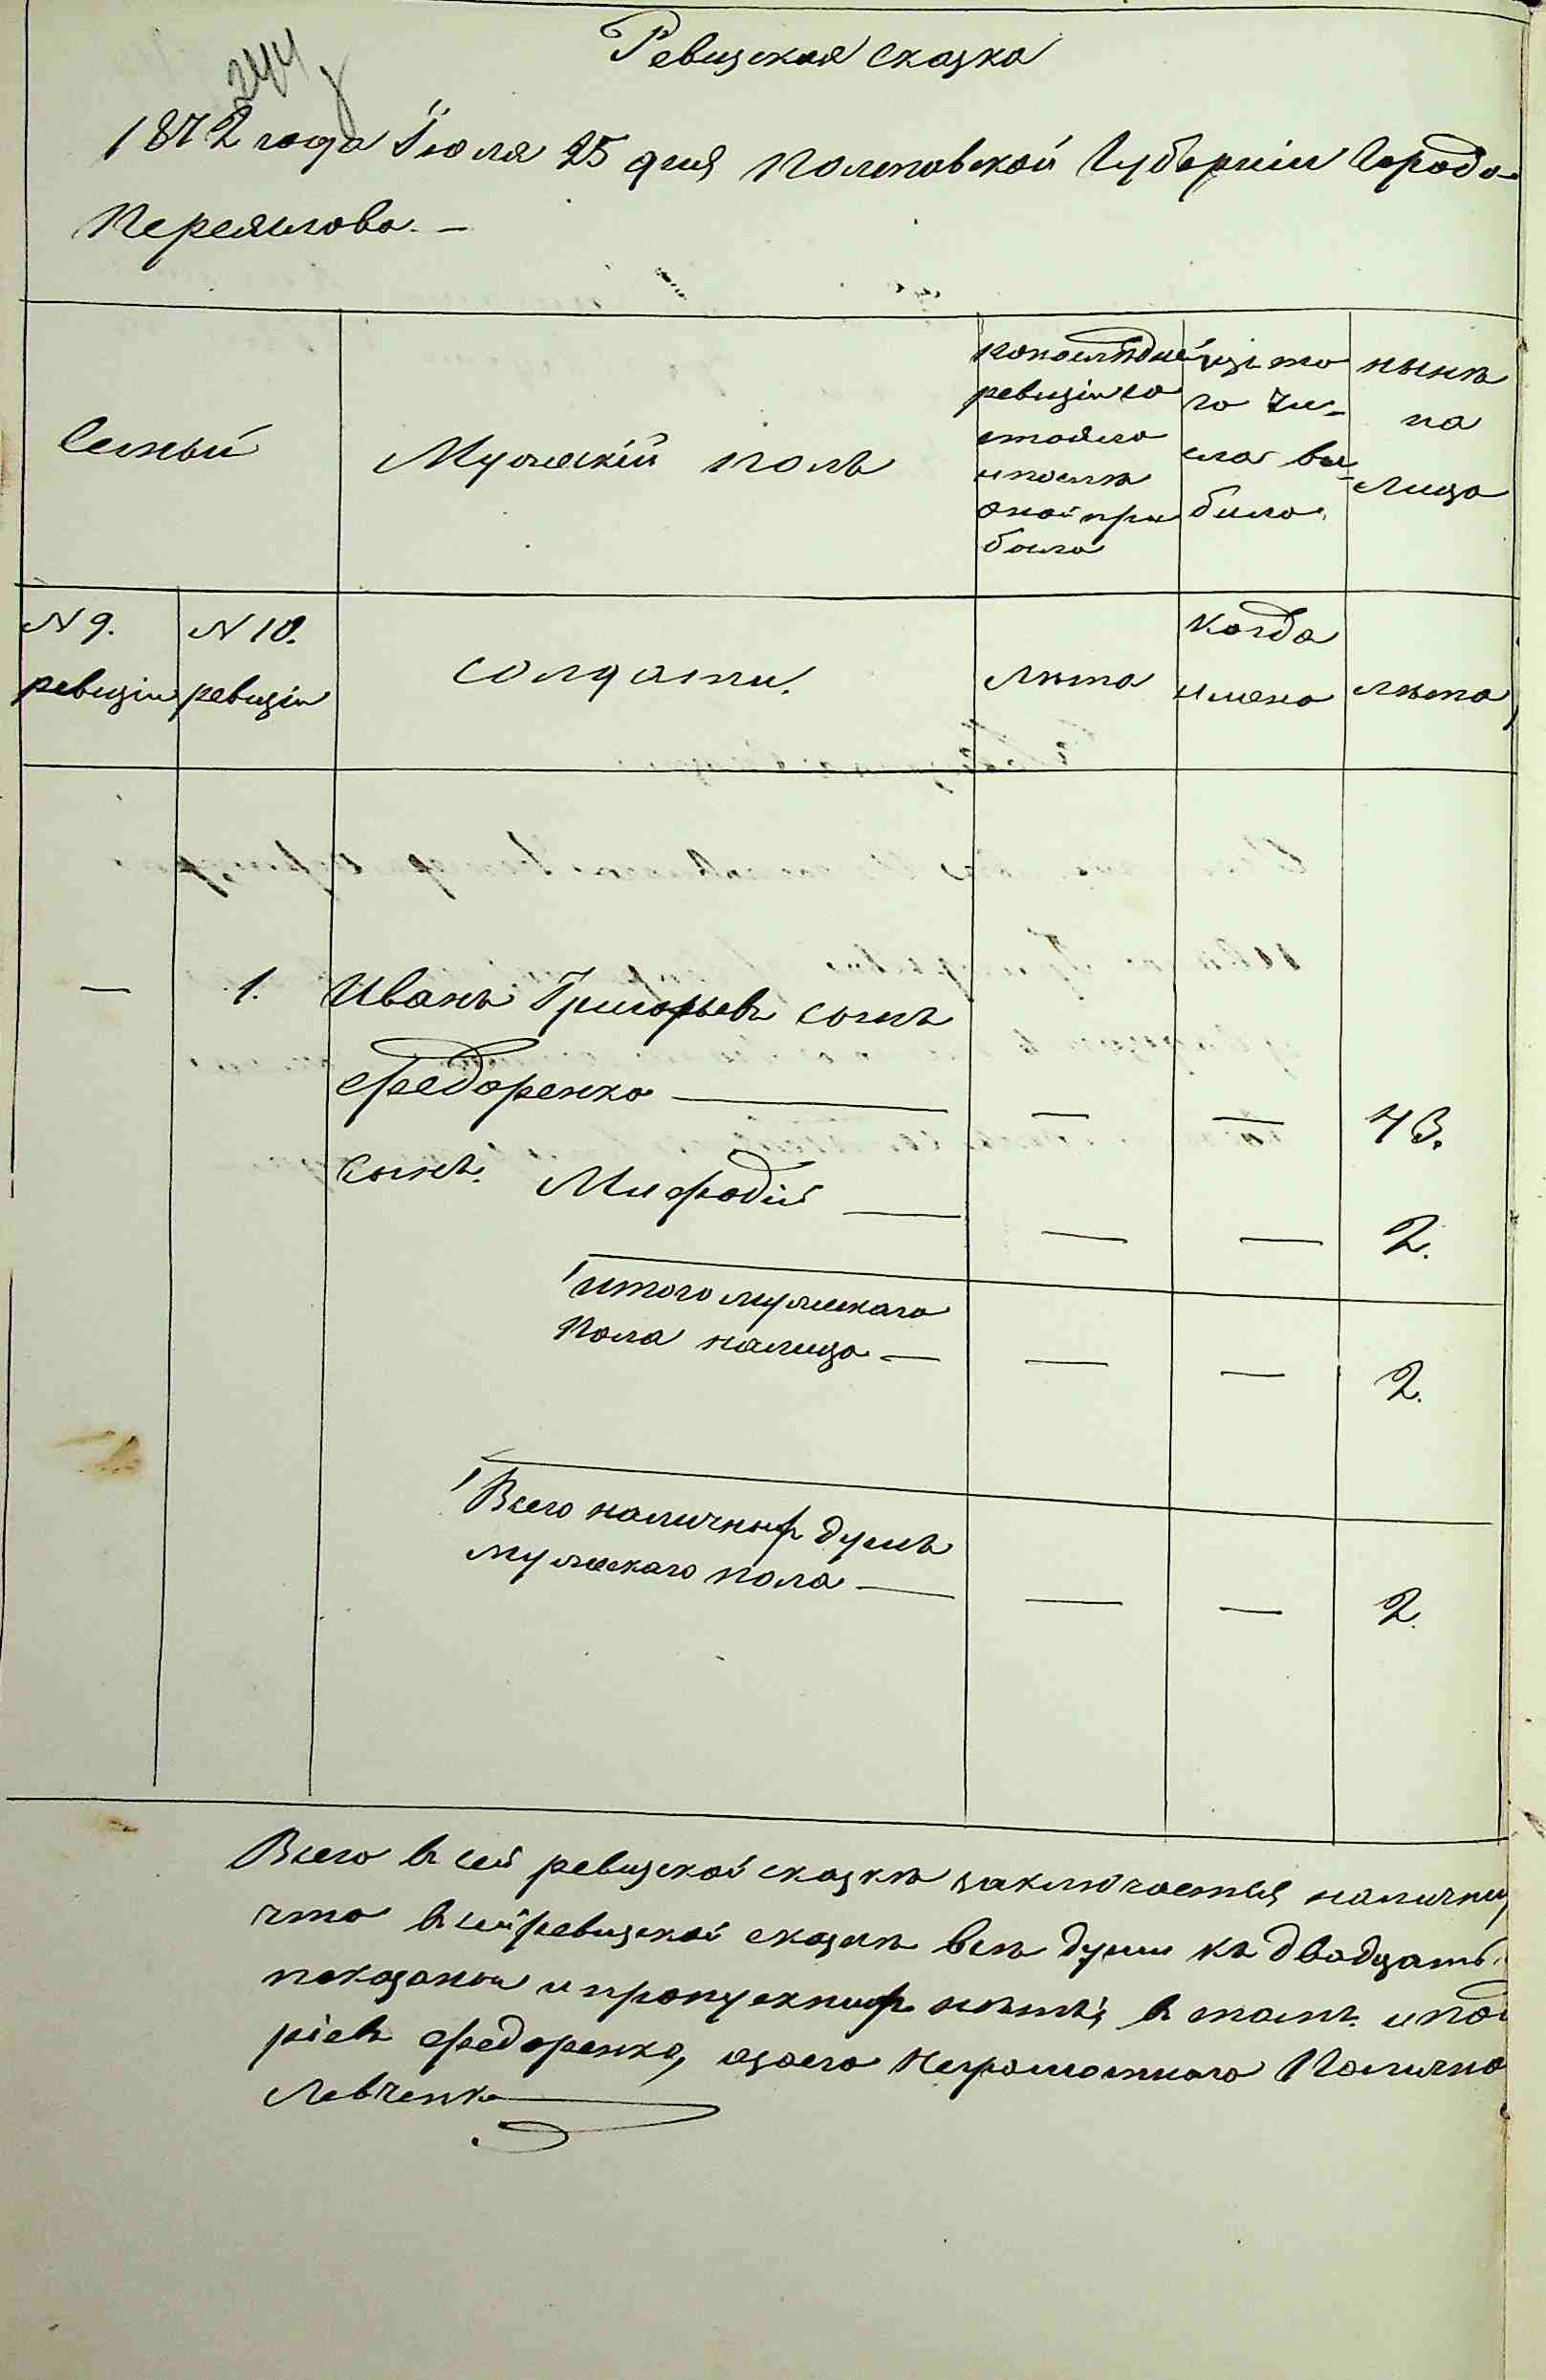 244
Ревизская сказка
1872 года Іюля 25 дня Полтавской Губерніи Города
Переяслова. –
Семьи
Мужескій полъ
по последней
ревизіи со
стояло
и после
оной при
было
изъ то
го чи-
сла вы-
было
ныне
на
лицо
N 9.
ревизіи
N 10.
ревизіи
солдаты.
лета
когда
имено
лета
— 1. Иванъ Григорьевъ сынъ
Федоренко — — — 43.
сынъ. Мифодій — — — 2.
итого мужескаго
пола налицо — — — 2.
Всего наличныхъ душъ
мужескаго пола — — — 2.
Всего въ сей ревизской сказкѣ заключается наличны
что в сей ревизской сказкѣ всѣ души къ двадцать
показаны и пропускныхъ нѣтъ; в томъ и под
ріевъ Федоренко, а за его неграмотнаго
Левченко